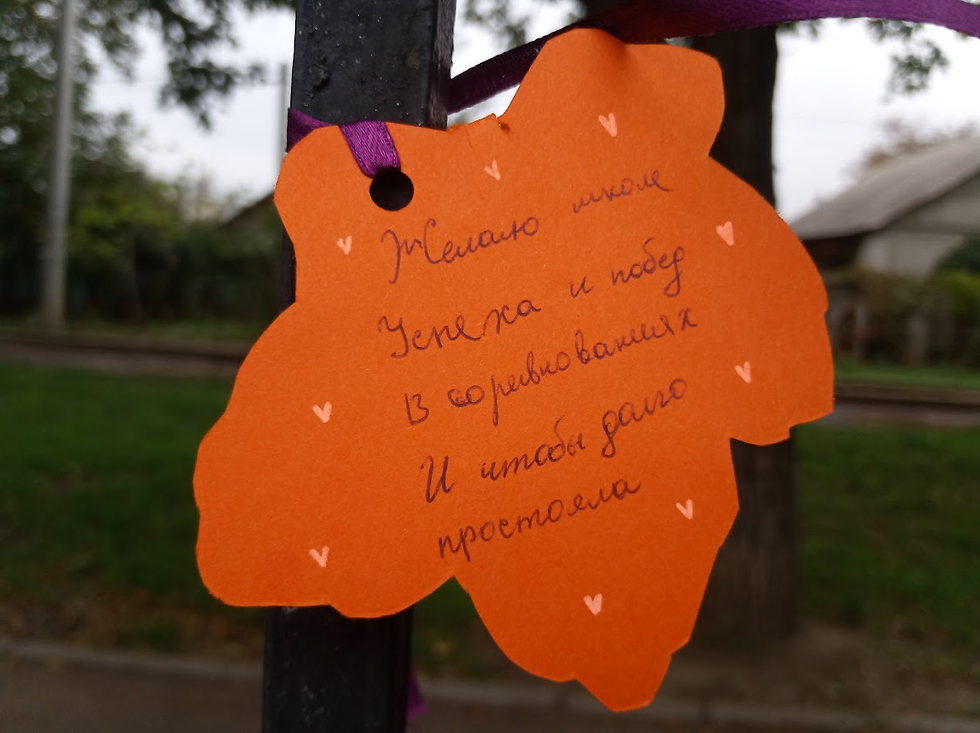 Желаю школе
Успеха и побед
В соревнованиях
И чтобы долго
простояла